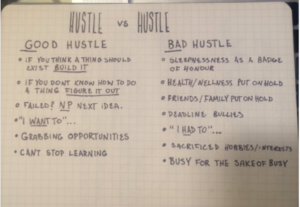 HUSTLE VS HUSTLE
GOOD HUSTLE
• IF YOU THINK A THING SHOULD
EXIST BUILD IT
• IF YOU DON'T KNOW HOW TO DO
A THING FIGURE IT OUT
• FAILED? NP NEXT IDEA.
• "I WANT TO"...
• GRABBING OPPORTUNITIES
• CANT STOP LEARNING
BAD HUSTLE
• SLEEPLESSNESS AS A BADGE
OF HONOUR
• HEALTH/WELLNESS PUT ON HOLD
• FRIENDS/FAMILY PUT ON HOLD
• DEADLINE BULLIES
• "I HAD TO"...
• SACRIFICED HOBBIES/INTERESTS
• BUSY FOR THE SAKE OF BUSY